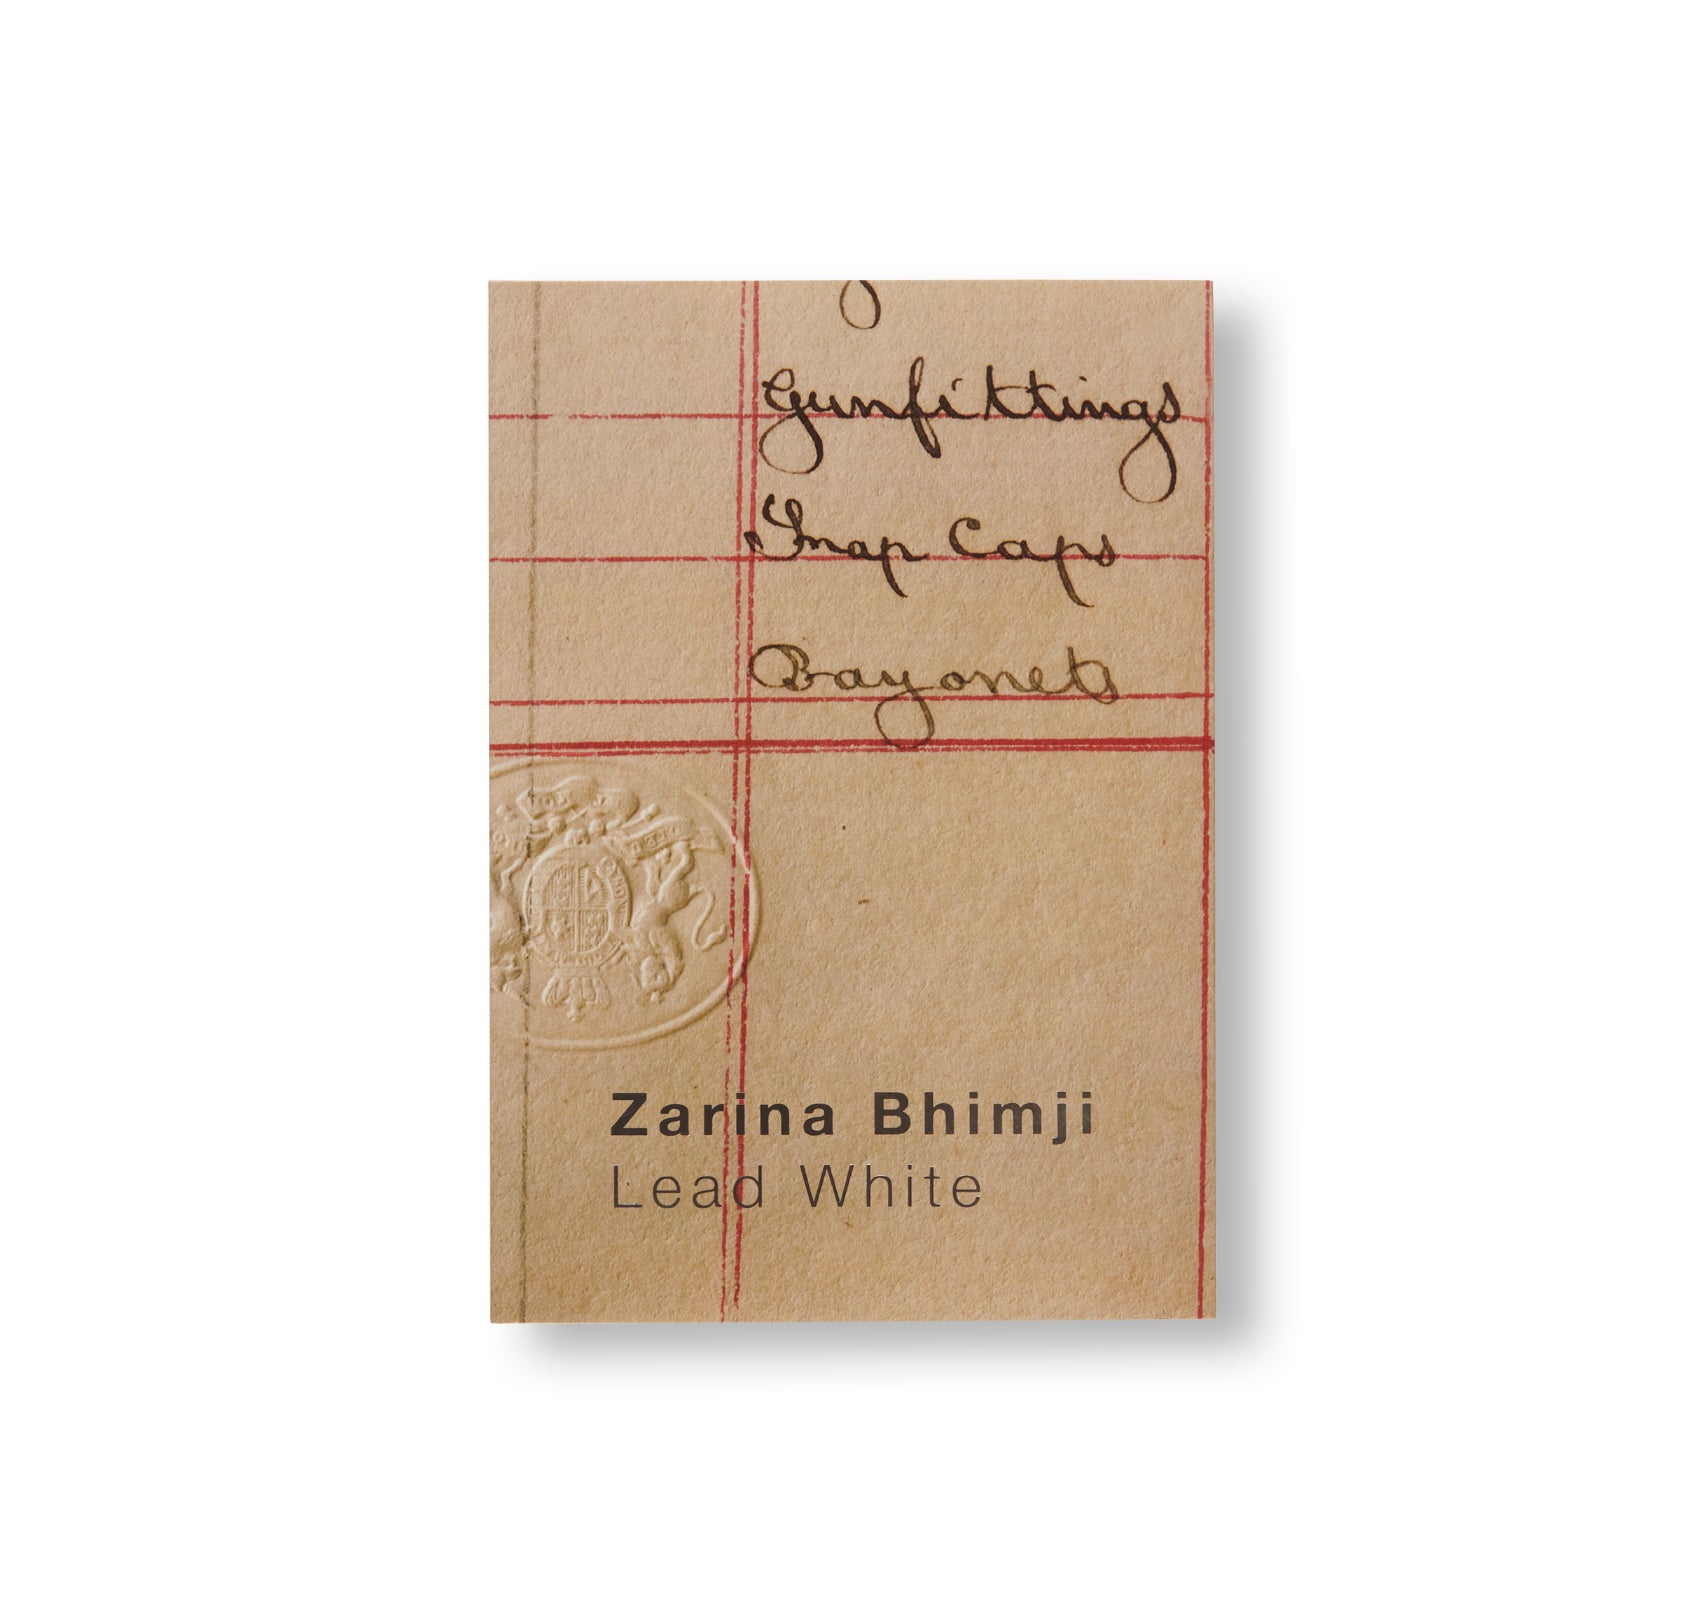 Gunfittings
Snap Caps
Bayonets
Zarina Bhimji
Lead White